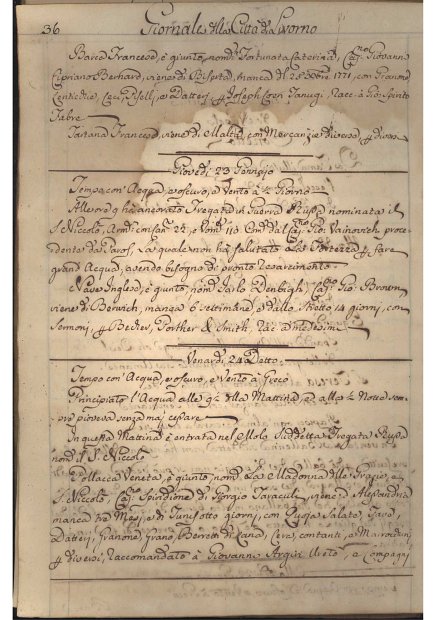 36 Giornale della Città di Livorno
Barca Francese, è giunto, nom.ta Fortunata Caterina, Cap.no Giovanni
Cipriano Berhard, viene di Biserta, manca il 28 8bre 1771, con Grano
Lenticchie, Ceci, Piselli, e Datteri p Joseph Coen Tanugi Racc.a Gio: Spirito
Fabre
Tartana Francese, viene di Malta, con Mercanzie diverse p diversi
Giovedì 23 Gennaio
Tempo con' Acqua, e oscuro, e Vento à Giorno
Alle ore q. ha ancorato Fregata in Guerra Russa nominata il
S: Niccolò, Arm: con Can: 22, e Uom: 113 Com: dal Cap: Gio: Vainovich proce-
dente da Paros, La quale non hà salutato La Fortezza p fare
grand' Acqua, avendo bisogno di pronto resarcimento
Nave Inglese, è giunto, nom: Carlo Denbigh, Cap: Gio: Brown
viene di Berwich, manca 6 settimane, e dallo Stretto 14 giorni, con
Sermoni, p Becher, Porther & Smith, Rac: a medesimi
Venerdì 24 Detto
Tempo con' Acqua, e oscuro, e Vento à Greco
Principiato l'Acqua alle della Mattina, ed alle Notte sem-
pre pioveva senza mai cessare
In questa Mattina è entrata nel Molo Suddetta Fregata Russa
nom: il S: Niccolò
Pollacca Veneta, è giunto, nom: La Madonna delle Grazie, e
S: Niccolò, Cap: Spiridione di Giorgio Taracul, viene d'Alessandria
manca tre Mesi, e di Tunis otto giorni, con Cuoja Salate, Fave,
Datteri, Granone, Grano, Berrette di Lana, Cera, contanti, e Marocchini
p diversi, Raccomandato à Giovanni Argiri Areto, e Compagni